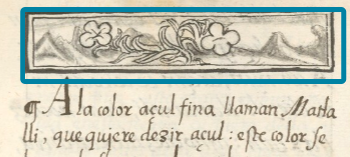 ¶ A la color açul fina llaman, Matla
lli, que quiere dezir, açul: este color se